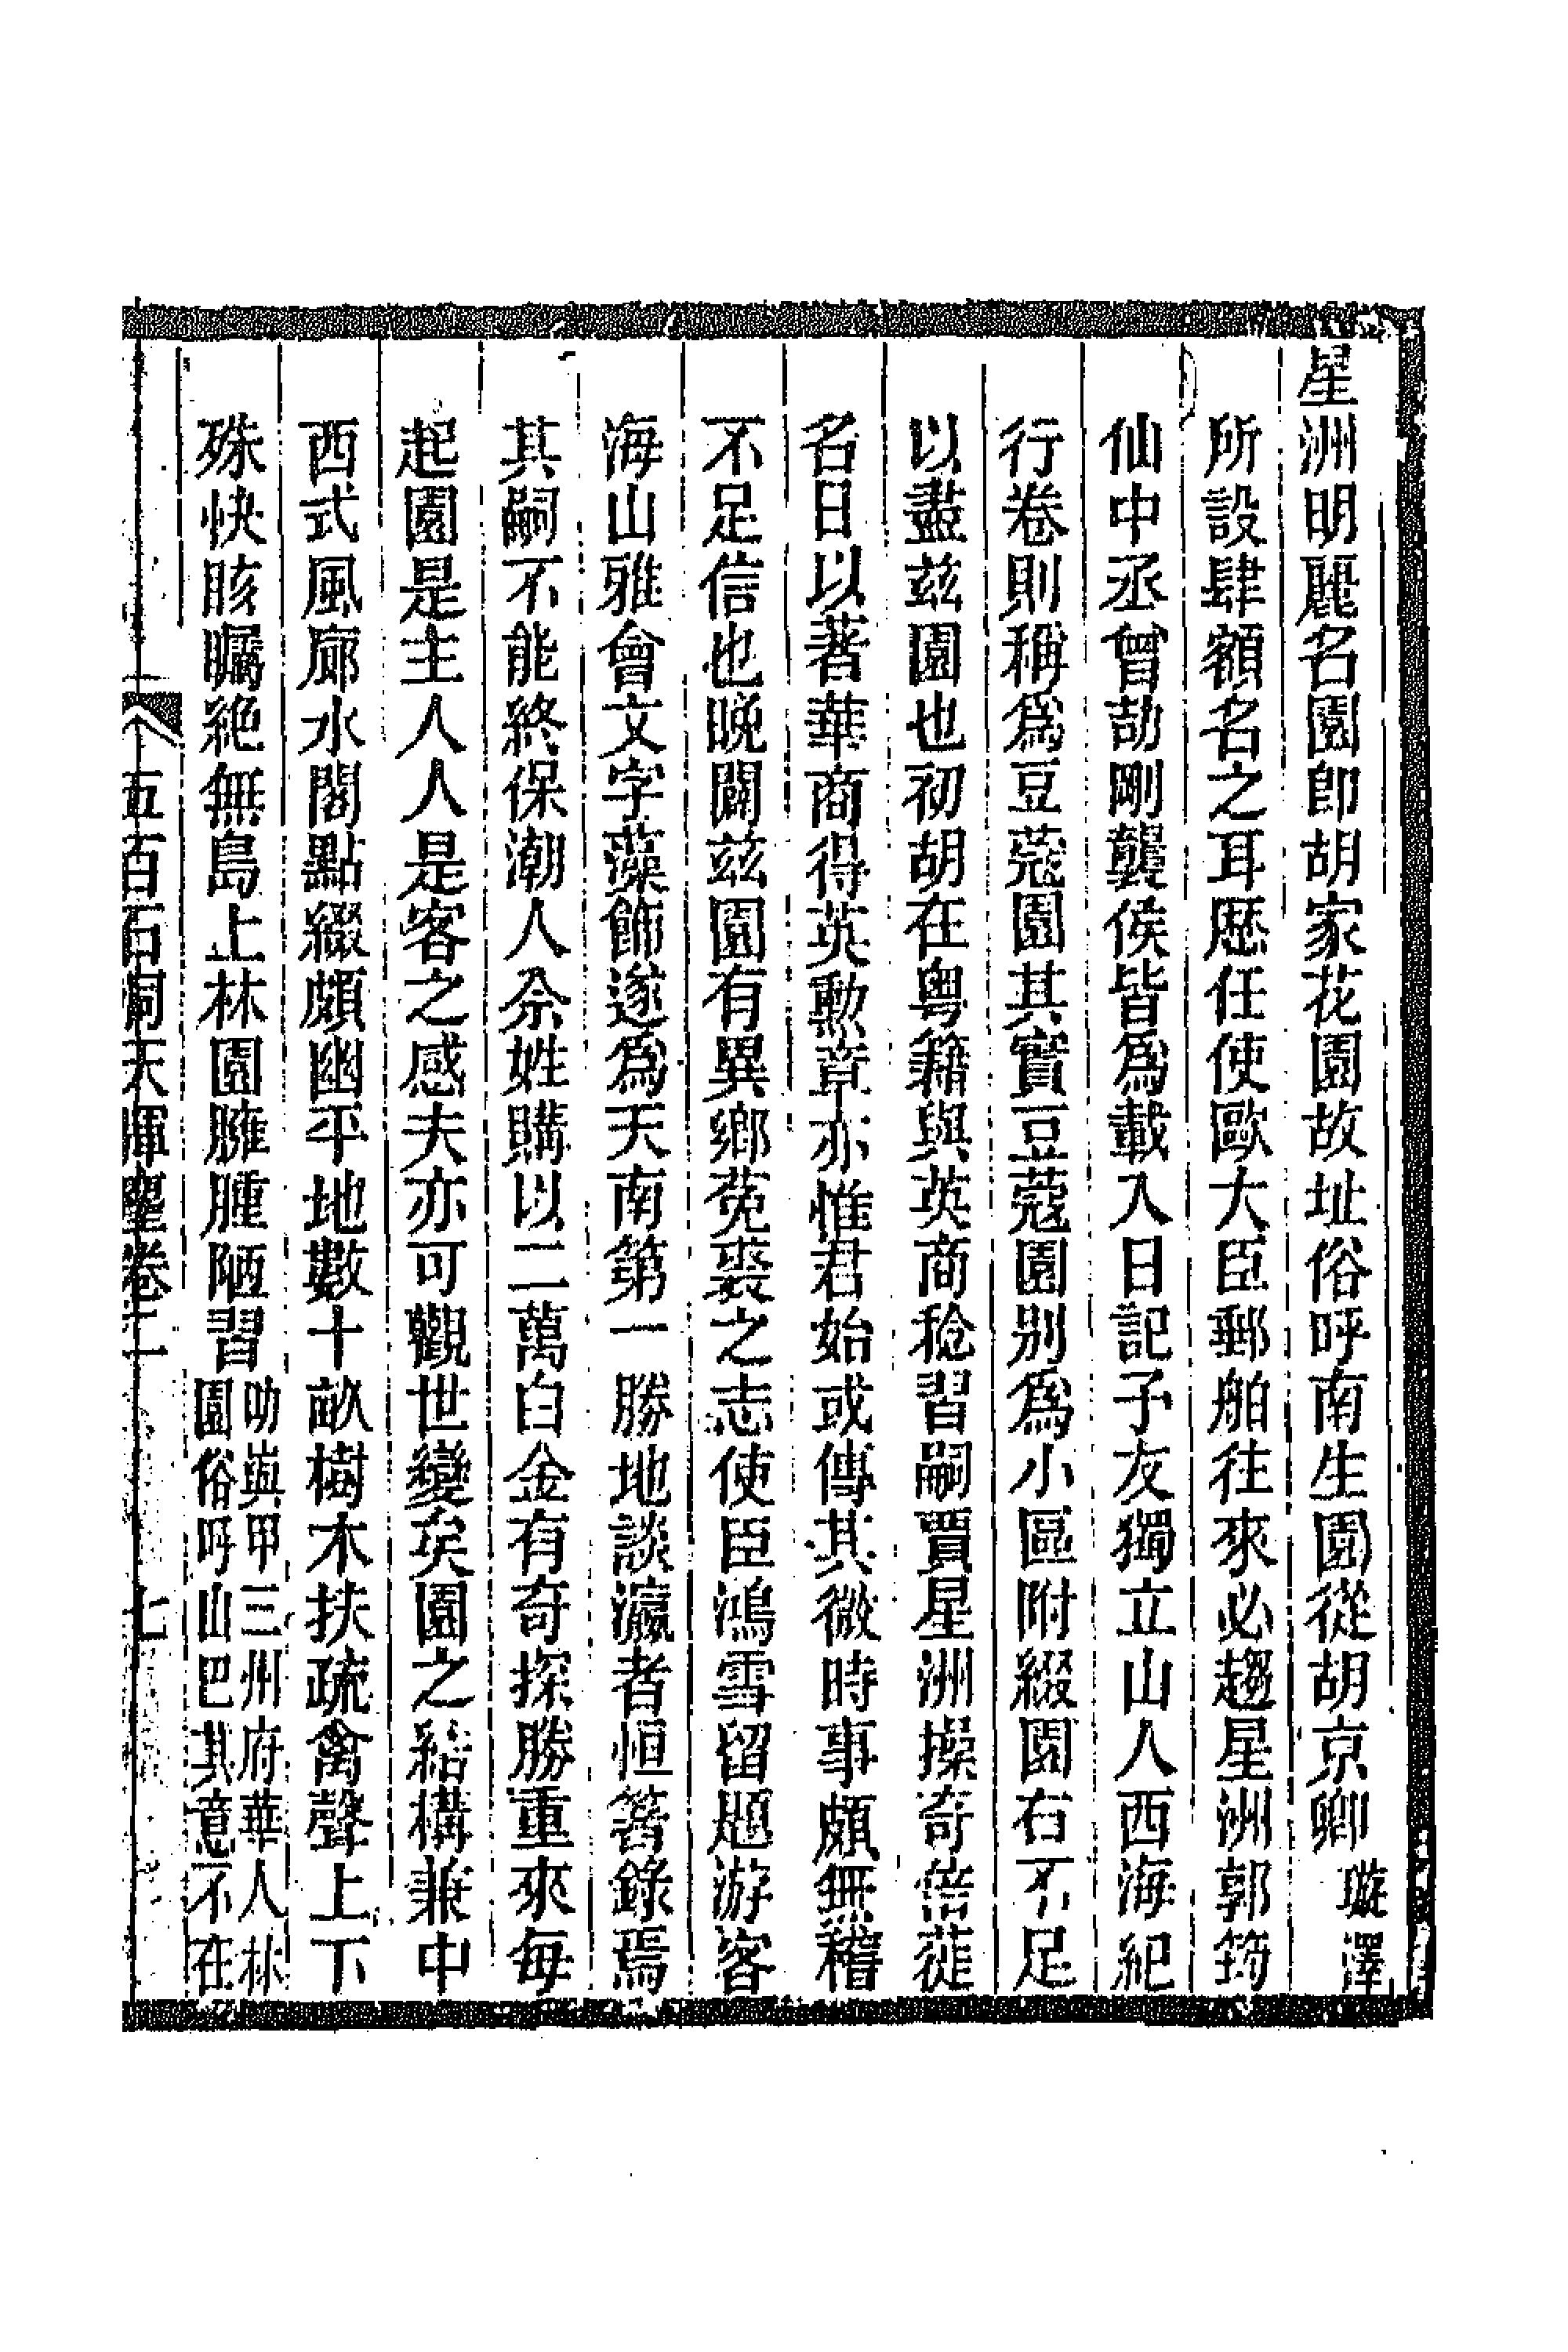 星洲明麗名園卽胡家花園故址俗呼南生園從胡京卿璇澤
所設肆額名之耳歷任使歐大臣郵舶往來必趨星洲郭筠
仙中丞曾劼剛襲侯皆爲載入日記予友獨立山人西海紀
行卷則稱爲豆蔻園其實豆蔻園別爲小區附綴園右不足
以盡兹園也初胡在粤籍與英商稔習嗣賈星洲操奇倍蓰
名日以著華商得英勲章亦惟君始或傳其微時事頗無稽
不足信也晚闢兹園有異鄉菟裘之志使臣鴻雪留題游客
海山雅會文字藻飾遂爲天南第一勝地談瀛者恒箸錄焉
其嗣不能終保潮人佘姓購以二萬白金有奇探勝重來每
起園是主人人是客之感夫亦可觀世變矣園之結構兼中
西式風廊水閣點綴頗幽平地數十畝樹木扶疏禽聲上下
殊快眩矚絶無島上林園臃腫陋習叻與甲三州府華人林
園俗呼山巴其意不在
五百石洞天揮麈卷二
七